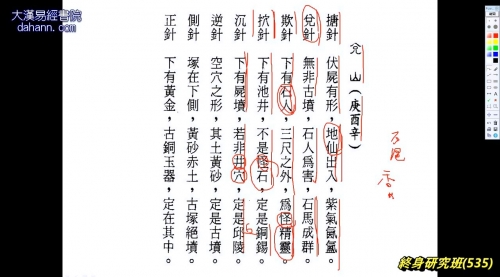 大漢易經書院
dahann.com
兌山(庚酉辛)
搪針 伏屍有形，地仙出入，紫氣氤氳。
兌針 無非古墳，石人爲害，石馬成群。
欺針 下有石人，三尺之外，爲怪精靈。
扻針 下有池井，不是怪石，定是銅錫。
沉針 下有屍墳，若非井穴，定是邱陵
逆針 空穴之形，其土黃砂，定是古墳。
側針 塚在下側，黃砂赤土，古塚絕墳。
正針 下有黃金，古銅玉器，定在其中。
終身研究班(535)